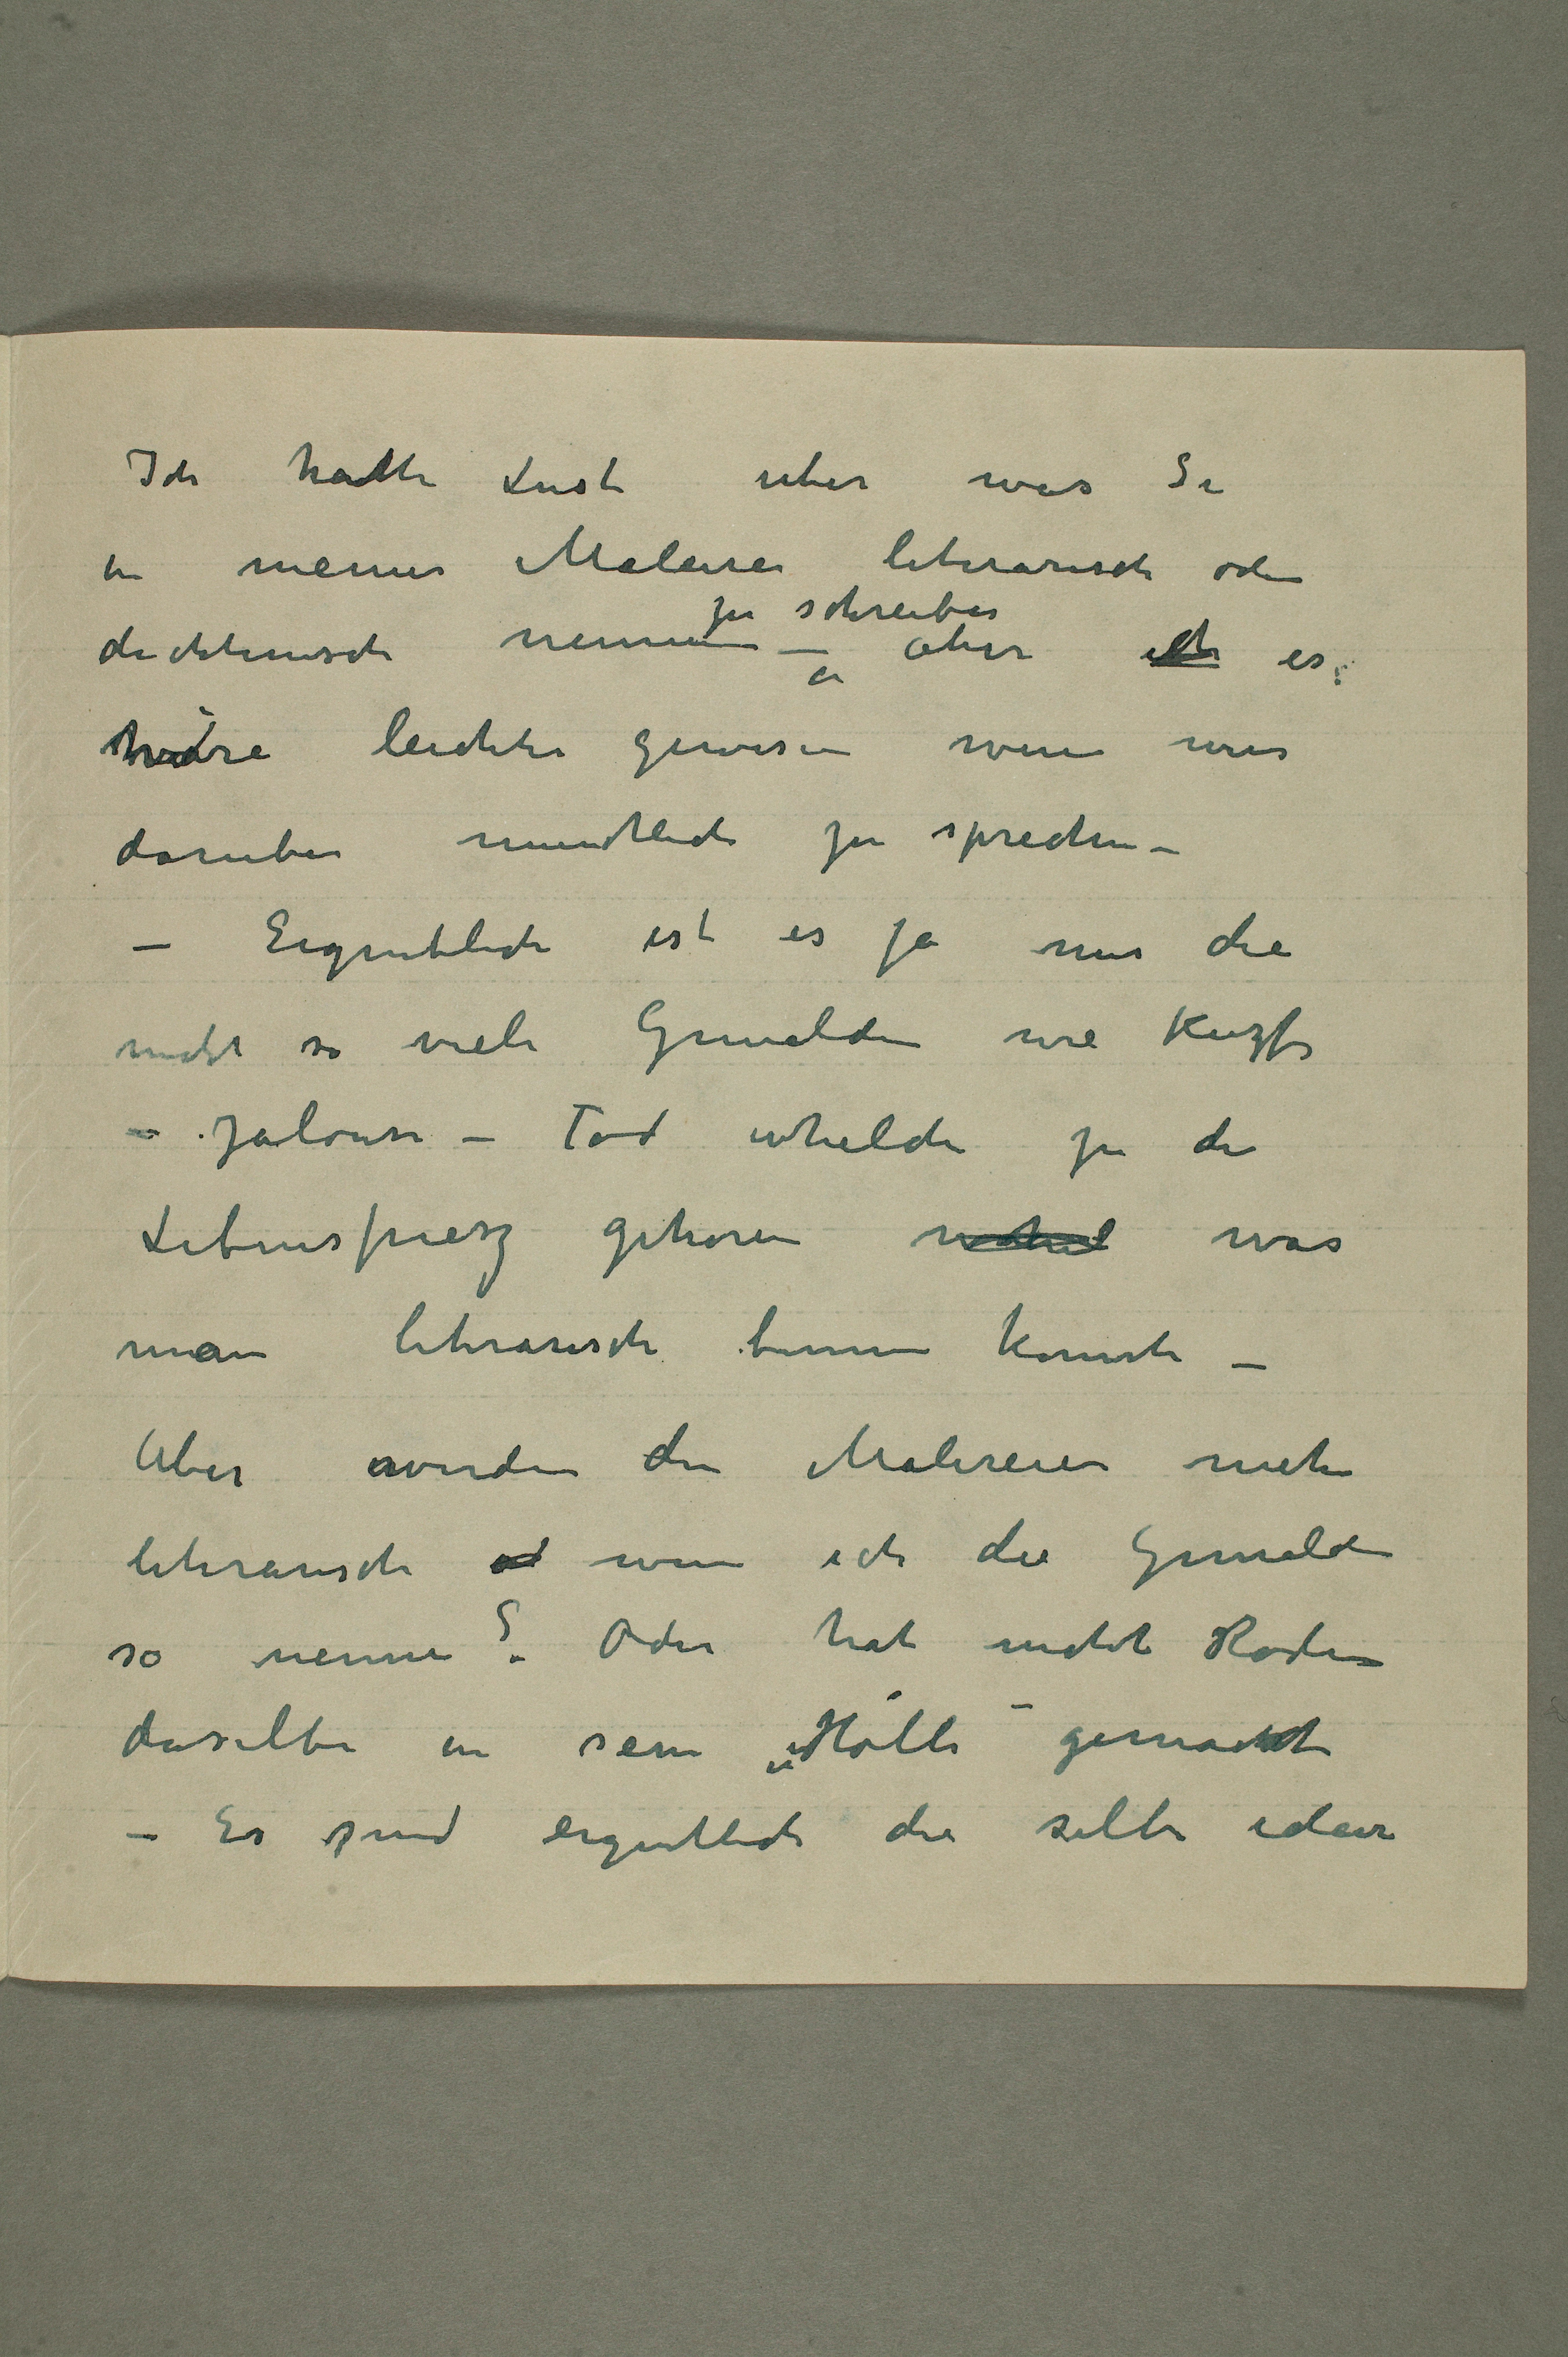 Ich hatte Lust uber was Sie
in meiner Malerei literarisch oder
zu schreiben
dichterisch nennen – aber ich es
wäre leichter gewesen wenn wir
daruber mundtlich zu sprechen –
– Eigentlich ist es ja nur die
nicht so viele Gemalden wie Kuzs
– Jalousi – Tod whelche zu der
Lebensfriesz gehoren was
man literarisch konnte –
Aber werden die Malereien mehr
literarisch wenn ich die Gemalden
so nenne? Oder hat nicht Rodin
dasselbe in sein „Hölle" gemacht
– Es sind eigentlich die selbe ideen